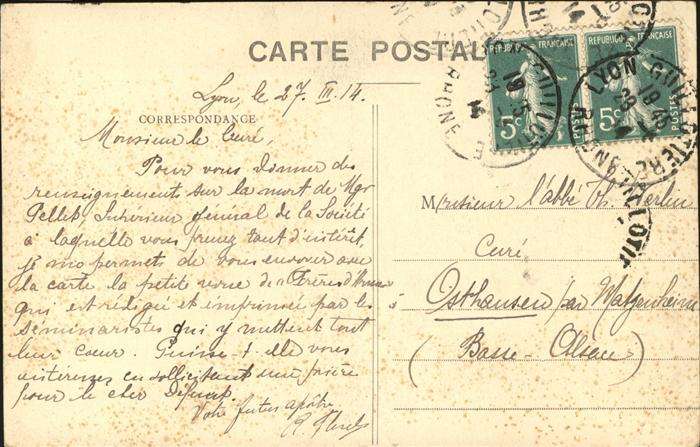 CARTE POSTALE
Lyon, le 27. III. 14.
CORRESPONDANCE
Monsieur le Curé,
Pour vous donner des
renseignements sur la mort de Mgr
Pellet, Supérieur général de la Société
à laquelle vous prenez tant d'intérêt,
je me permets de vous envoyer avec
la carte la petite revue des "Frères d'Armes"
qui est rédigée et imprimée par les
séminaristes qui y mettent tout
leur cœur. Puisse-t-elle vous
intéresser en sollicitant une prière
pour le cher Défunt.
Votre futur apôtre
REPUBLIQUE FRANÇAISE
5c
POSTES
REPUBLIQUE FRANÇAISE
5c
POSTES
LYON GUILLOTIERE
RHONE
Monsieur l'abbé Th.
Curé
à Osthausen par Matzenheim
(Basse-Alsace)